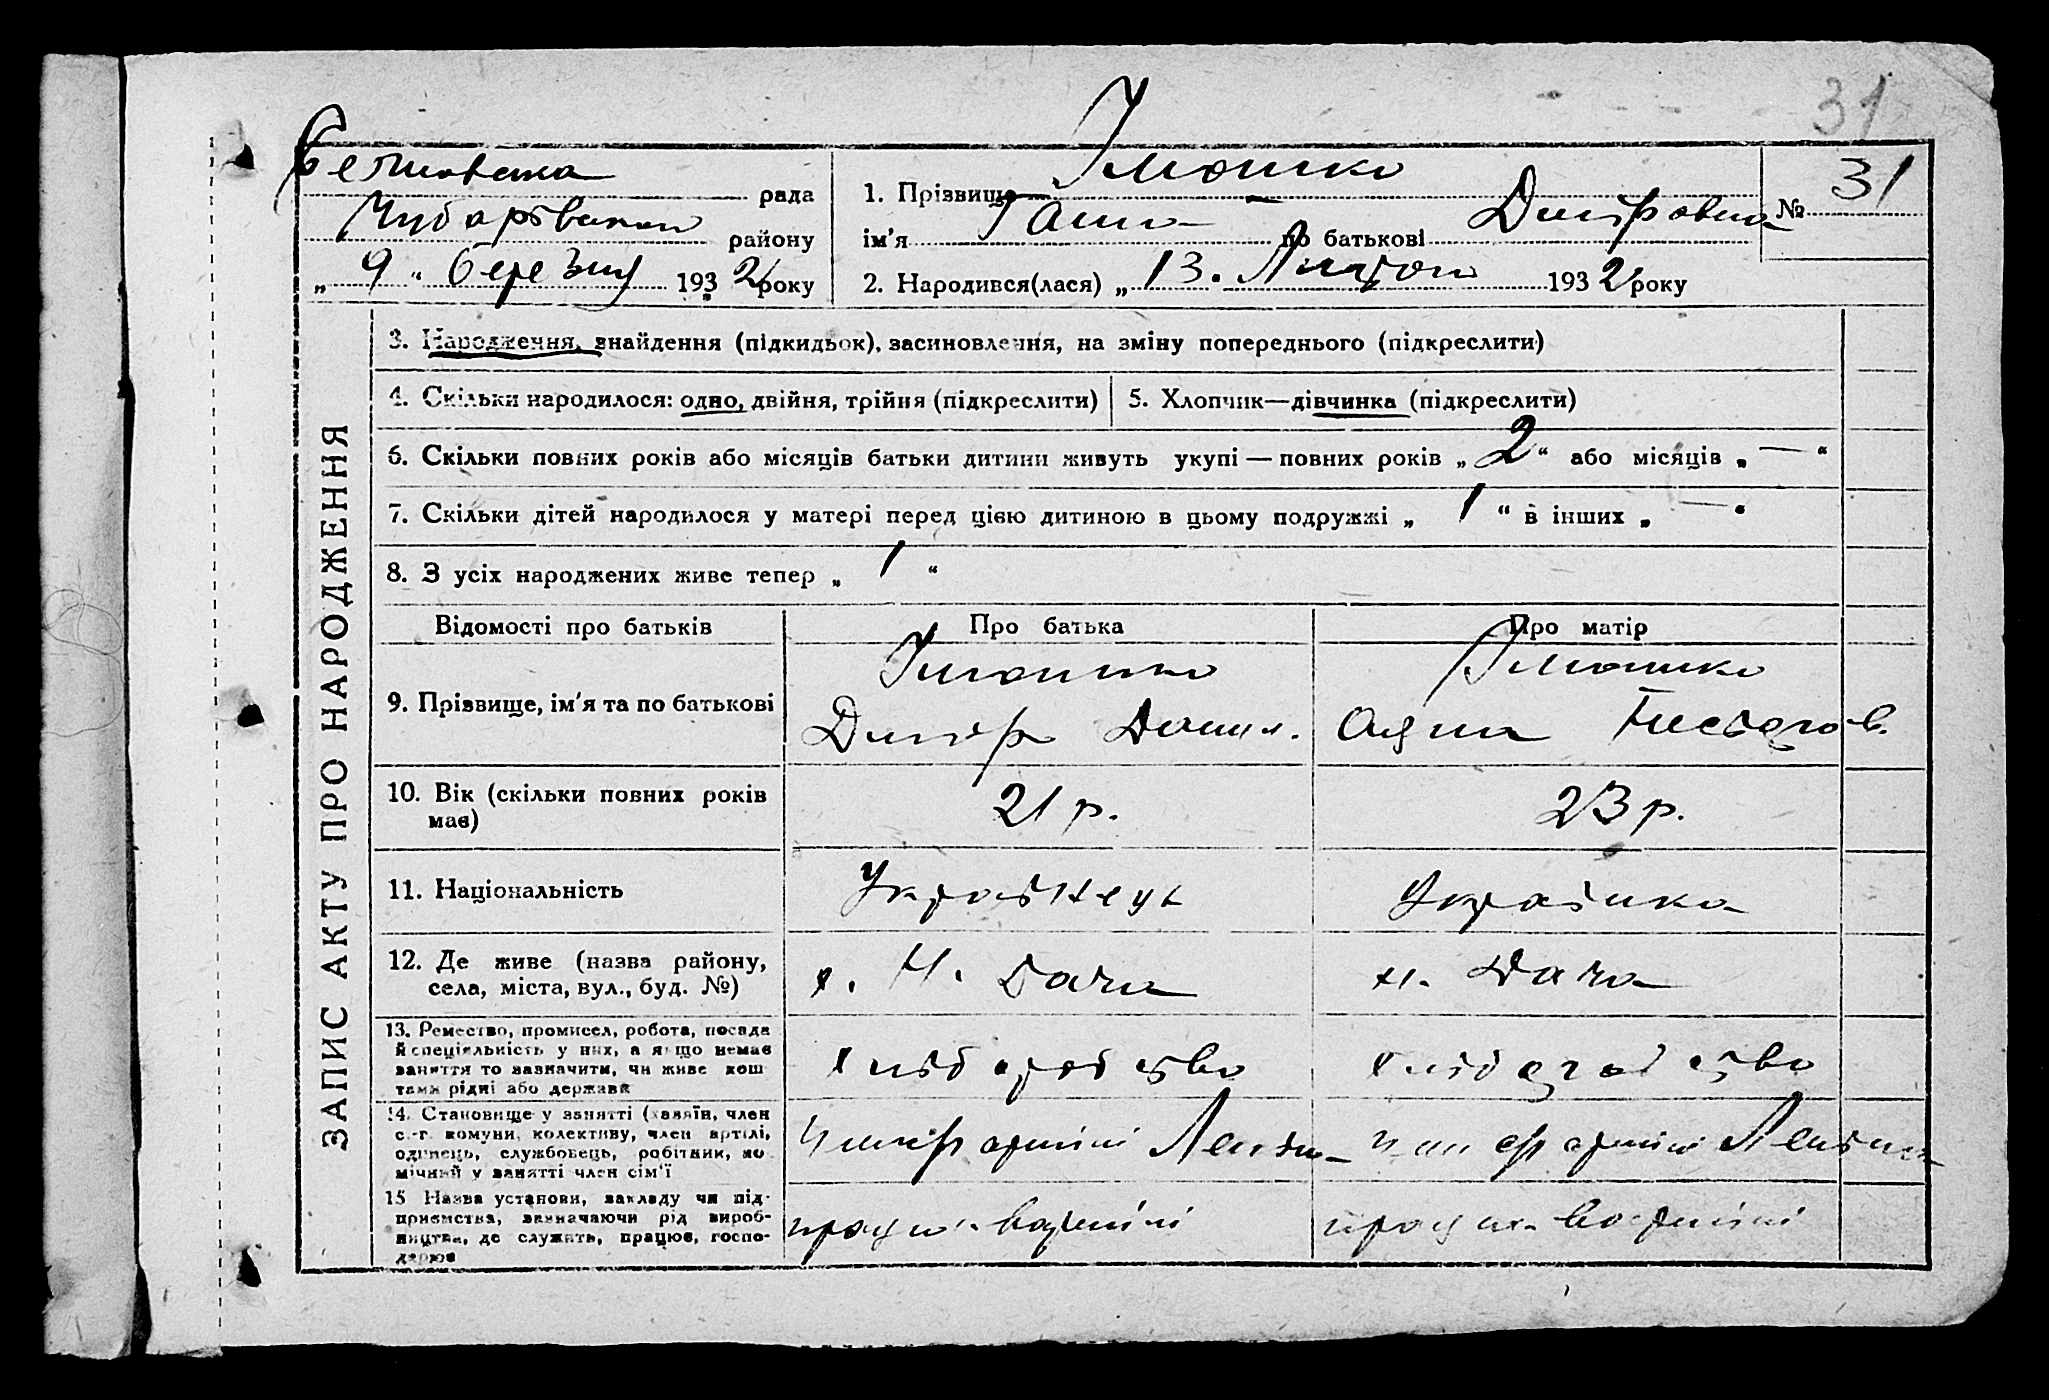 31
рада
Чубарівського району
„ 9 “ березня 1932 року
1. Прізвище
ім'я Ганна по батькові Дмитровна
2. Народився(лася) „ 13. Лютого 1932 року
№ 31
ЗАПИС АКТУ ПРО НАРОДЖЕННЯ
3. Народження, знайдення (підкидьок), засиновлення, на зміну попереднього (підкреслити)
4. Скільки народилося: одно, двійня, трійня (підкреслити)
5. Хлопчик—дівчинка (підкреслити)
6. Скільки повних років або місяців батьки дитини живуть укупі — повних років „ 2 “ або місяців „ — “
7. Скільки дітей народилося у матері перед цією дитиною в цьому подружжі „ 1 “ в інших „ — “
8. З усіх народжених живе тепер „ 1 “
Відомості про батьків
Про батька
Про матір
9. Прізвище, ім'я та по батькові
Дмитро
10. Вік (скільки повних років має)
21 р.
23 р.
11. Національність
Українець
Українка
12. Де живе (назва району, села, міста, вул., буд. №)
х. Н. Дача
Н. Дача
13. Ремество, промисел, робота, посада й спеціяльність у них, а якщо немає заняття то зазначити, чи живе коштами рідні або держави
хліборобство
хліборобство
14. Становище у занятті (хазяїн, член с.-г. комуни, колективу, член артілі, одинець, службовець, робітник, помічний у занятті член сім'ї
член артілі Леніна
член артілі Леніна
15 Назва установи, закладу чи підприємства, зазначаючи рід виробництва, де служить, працює, господарює
працює в артілі
працює в артілі